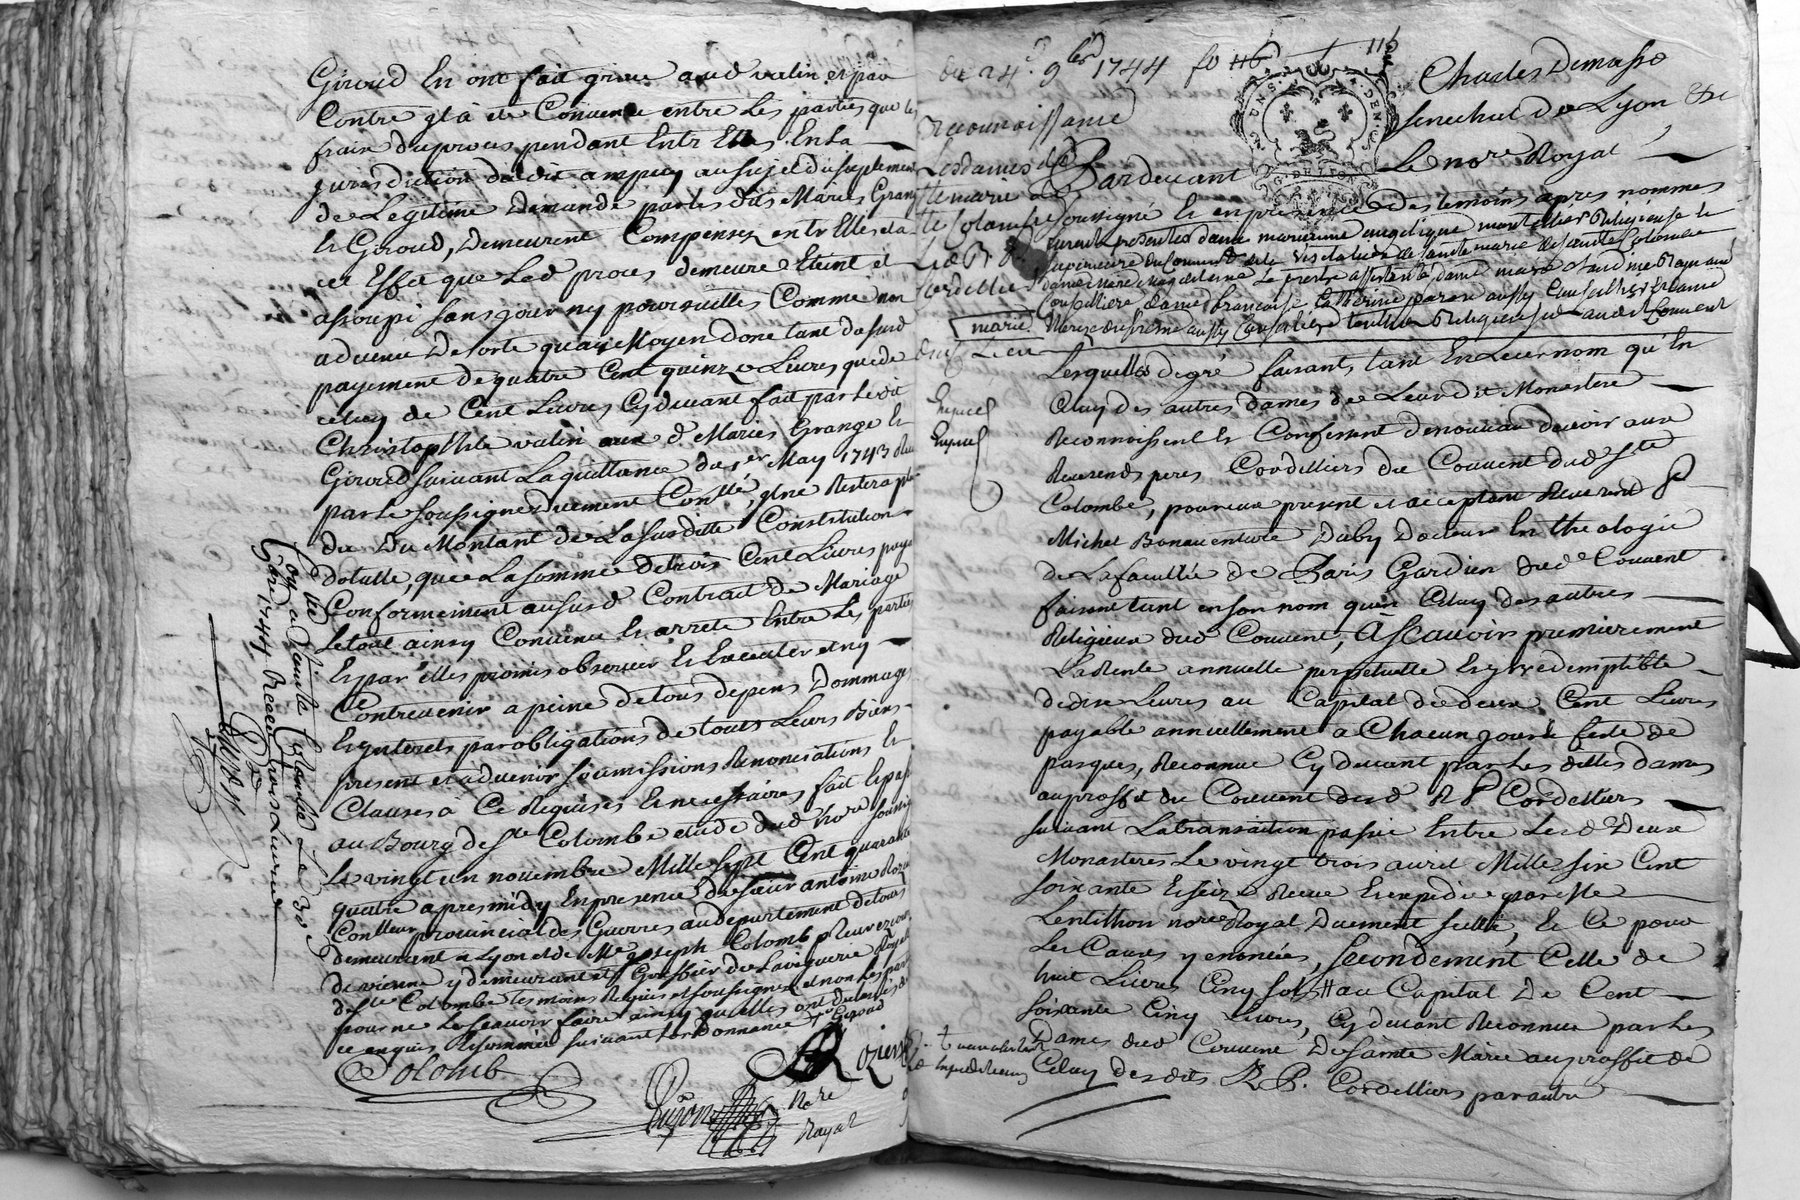 Giroud En ont fait grace aud valin et par
Contre yl à été Convenu entre Les parties que les
frais du proces pendant Entr Elles En La
jurisdiction dudit ampuy au sujet du suplement
de Legitime Demandé par les dits Mariés Grange
Et Giroud, Demeurent Compensez entr Elles et a
cet Effet que Led proces demeure Eteint et
assoupi sans y pouvoir
advenu De sorte qu'au Moyen donc tant dusurd
payement de quatre Cent quinze Livres que de
celuy de Cent Livres Cy devant fait par Ledit
Christophle valin aux d Mariés Grange Et
Giroud suivant La quittance du 1er May 1743 Reçue
par Le soussigné duement Conllé, yl ne Restera plus
du Du Montant de La susditte Constitution
dotalle, que La somme de trois Cent Livres payable
Conformement au susd Contrait de Mariage
Le tout ainsy Convenu Et arreté Entre Les parties
Et par elles promis observer Et Executer et ny
Contrevenir a peine de tous depens Dommages
Et ynterets par obligations de touts Leurs Biens
present et advenir soumissions Renonciations Et
Clauses à Ce Requises Et necessaires fait Et passé
au Bourg de Ste Colombe etude dud Nore soussigné
Le vingt un novembre Mille sept Cent quarante
quatre apres midy En presence de sieur antoine Rozier
Conlleur provincial des Guerres au departement de
demeurant a Lyon et de Me joseph Colomb
de vienne y demeurant et Greffier de La
de Ste Colombe temoins Requis et soussignés et non Les parties
pour ne Le sçavoir faire ainsy qu'elles ont declaré de
ce enquis Et sommés suivant L'ordonnance Giroud
Colomb
Rozier
Dujon
Nore
Royal
Conlé a Sainte Colombe Le 30
9bre 1744 Receu trois Livres
Dujon
du 24e 9bre 1744 fo 116
116
Reconnoissance
Les dames de
Ste marie de
Ste Colombe
Cordelliers
marie
Expedié
Expedié
GEN. DE LYON
Charles Demasso
senechal de Lyon &c
Pardevant Le nore Royal
soussigné Et en presence des temoins apres nommés
furent presentes dame marianne angelique Religieuse
superieure du Couvent de la visitation de sainte marie de sainte Colombe
dame marie magdeleine assistante dame marie
Conseillere dame françoise Catherine aussy Conseillere Et dame
aussy Conseillere toutes Religieuses aud Couvent
Lesquelles de gré faisant, tant En Leur nom qu'En
Celuy des autres dames de Leur dit Monastere
Reconnoissent Et Confessent de nouveau devoir aux
Reverends peres Cordelliers du Couvent dud Ste
Colombe, pour eux present et acceptant Reverend P
Michel Bonaventure Duby Docteur En theologie
de La faculté de Paris Gardien dud Couvent
faisant tant en son nom qu'en Celuy des autres
Religieux dud Couvent, Asçavoir premierement
La Rente annuelle perpetuelle Et yrredemptible
de dix Livres au Capital de deux Cent Livres
payable annuellement a Chacun jour Et feste de
pasques, Reconnue Cy devant par Les dittes dames
au proffit du Couvent desd R P Cordelliers
suivant La transaction passée Entre Lesd Deux
Monasteres Le vingt trois avril Mille six Cent
soixante Et seize Reçue Et expediée par Me
Lentilhon nore Royal Duement sellé, Et Ce pour
Les Causes y enoncées, Secondement Celle de
huit Livres Cinq sols au Capital De Cent
soixante Cinq Livres, Cy devant Reconnue par Les
Dames dud Couvent De sainte Marie au proffit de
Celuy desdits R P. Cordelliers par autre